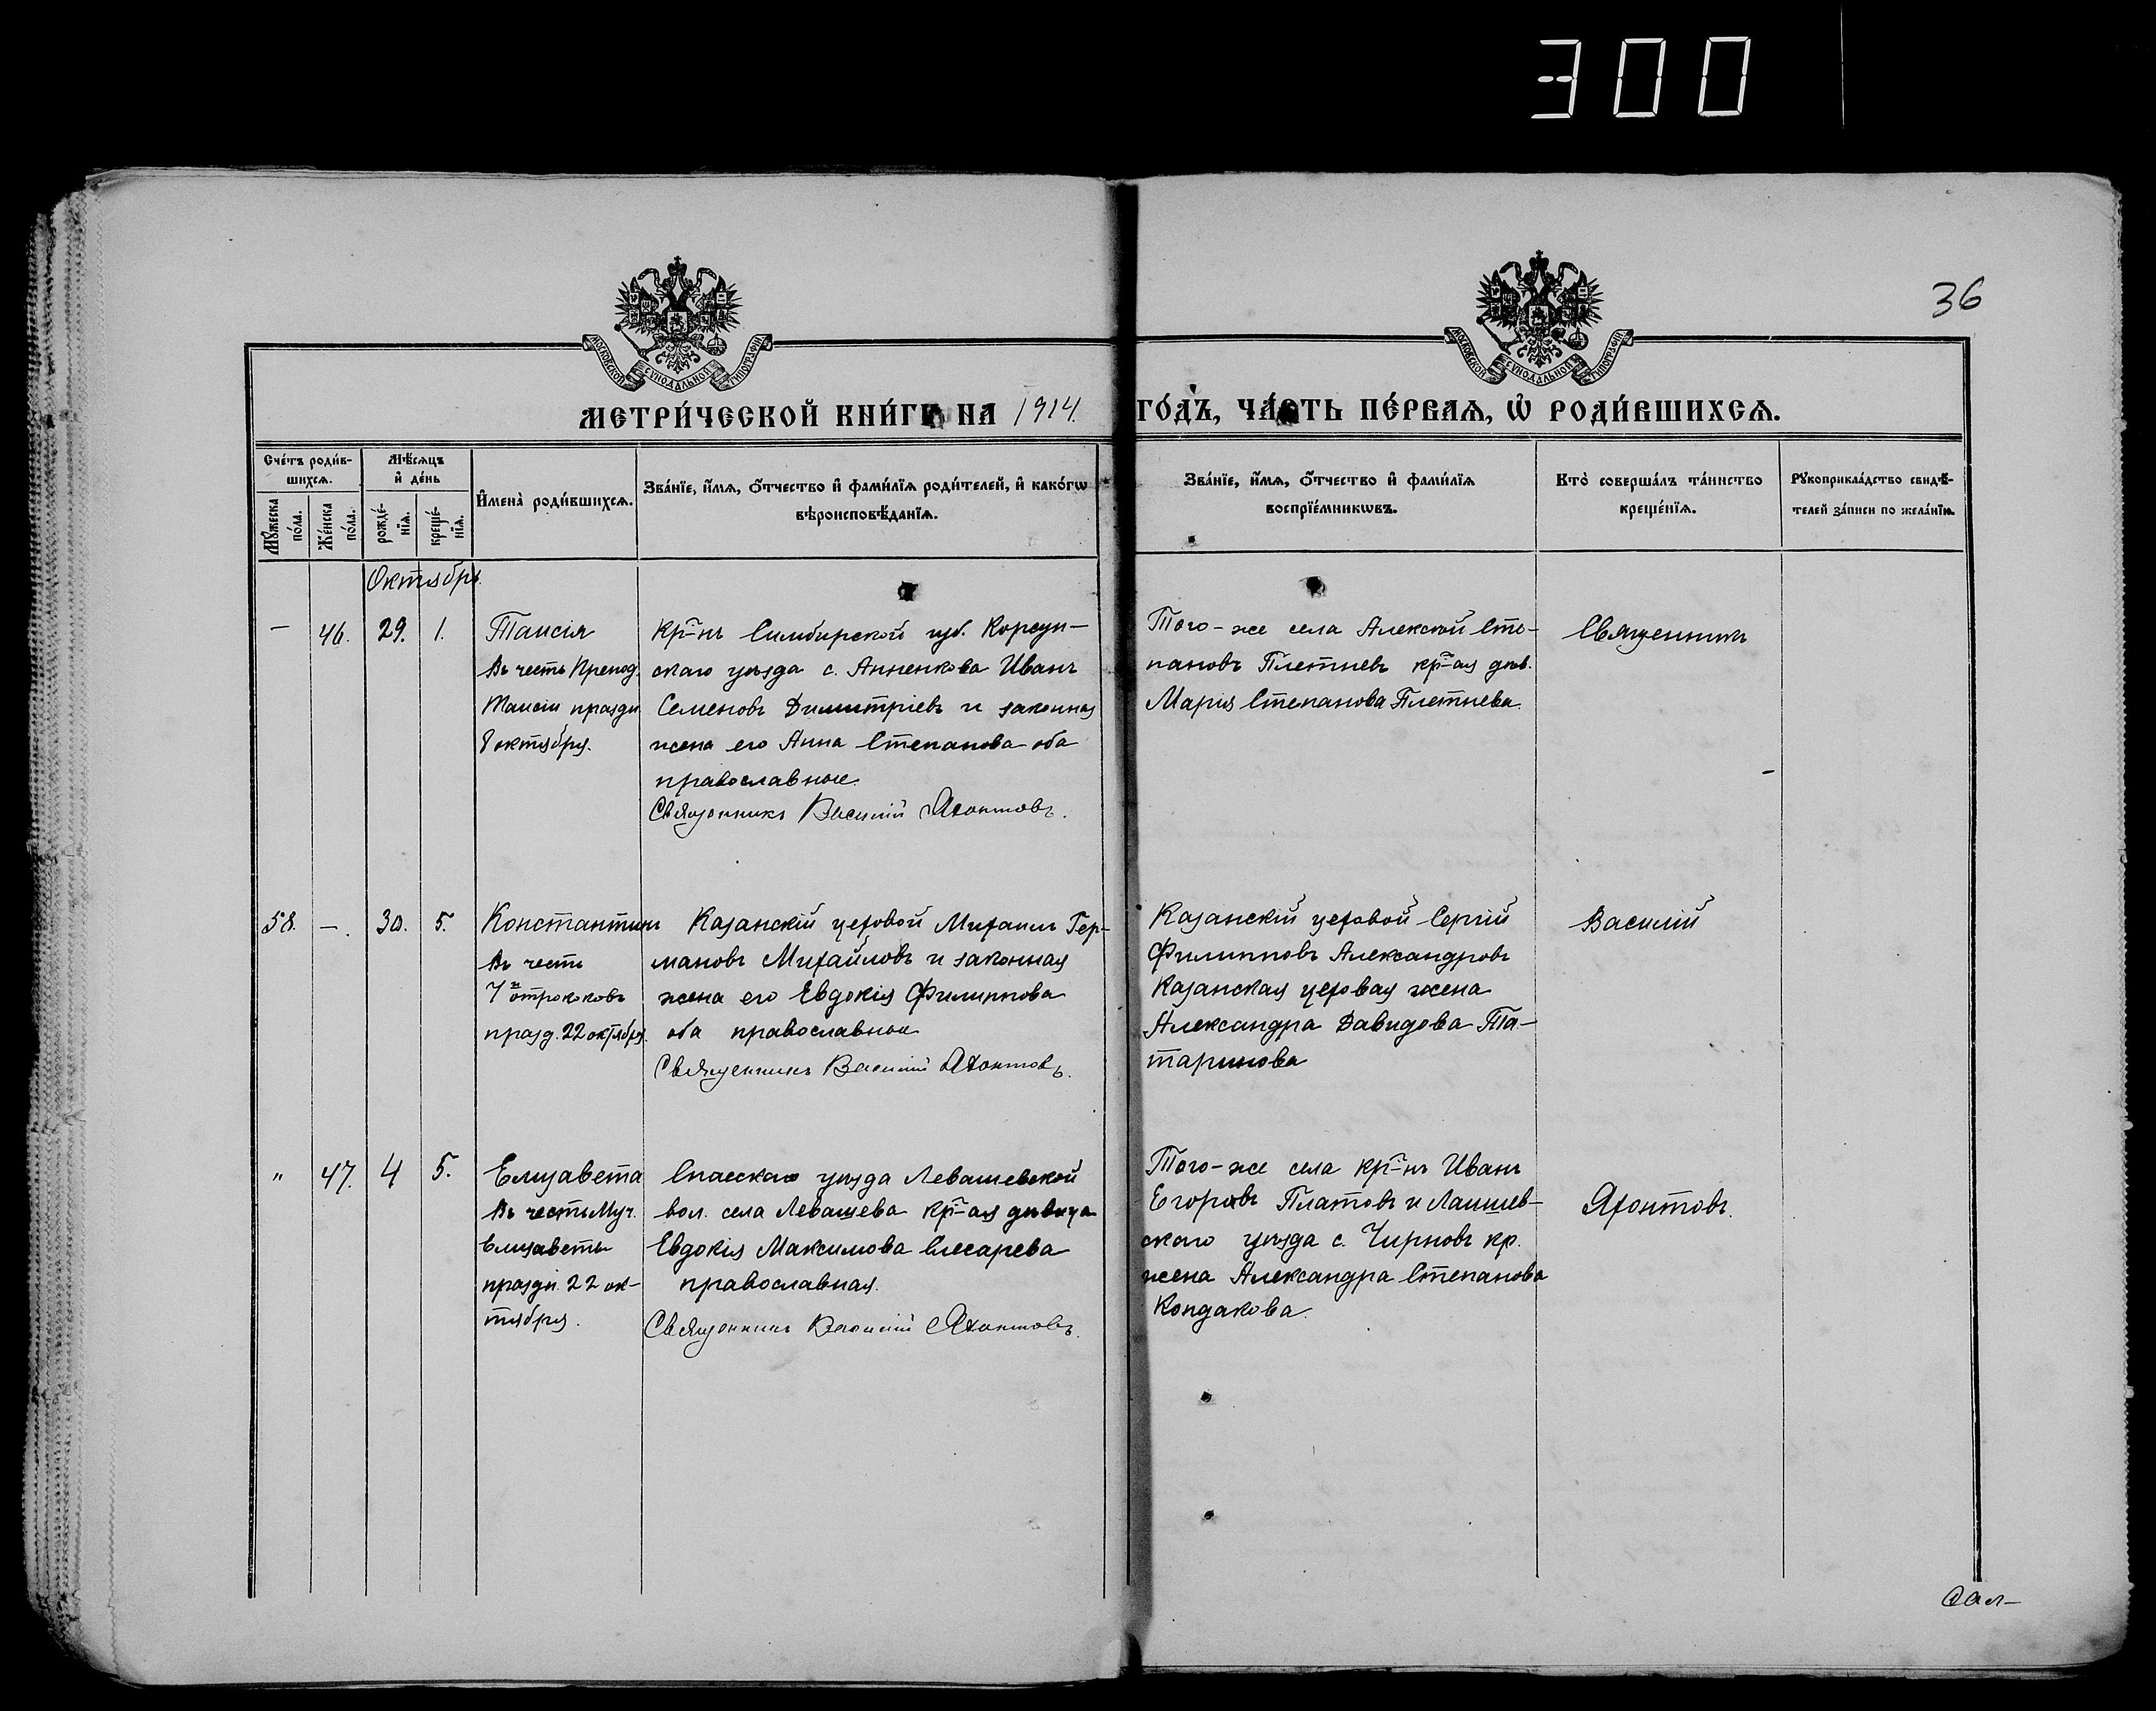 300
36
МОСКОВСКОЙ СѴНОДАЛЬНОЙ ТИПОГРАФІИ
МОСКОВСКОЙ СѴНОДАЛЬНОЙ ТИПОГРАФІИ
МЕТРИ́ЧЕСКОЙ КНИ́ГИ НА 1914. ГО́ДЪ, ЧА́СТЬ ПЕ́РВАѦ, Ѡ РОДИ́ВШИХСѦ.
Сче́тъ роди́в-
шихсѧ.
Мꙋ́жеска
по́ла.
Же́нска
по́ла.
Мѣ́сѧцъ
и҆ де́нь
рожде́-
нїѧ.
креще́-
нїѧ.
И҆мена̀ роди́вшихсѧ.
Зва́нїе, и҆́мѧ, ѻ҆́тчество и҆ фами́лїѧ роди́телей, и҆ како́гѡ
вѣроисповѣ́данїѧ.
Зва́нїе, и҆́мѧ, ѻ҆́тчество и҆ фами́лїѧ
воспрїе́мникѡвъ.
Кто̀ соверша́лъ та́инство
креще́нїѧ.
Рꙋкоприкла́дство свидѣ́-
телей за́писи по жела́нїю.
Октябрь.
— 46. 29. 1.
Таисія
Въ честь Препод.
Таисіи праздн.
8 октября.
Кр-нъ Симбирской губ. Корсун-
скаго уѣзда с. Анненкова Иванъ
Семеновъ Димитріевъ и законная
жена его Анна Степанова оба
православные.
Священникъ Василій Яхонтовъ.
Того-же села Алексѣй Сте-
пановъ Плетневъ кр-ая дѣв.
Марія Степанова Плетнева.
Священникъ
58. —. 30. 5.
Константинъ
Въ честь
7и отрококовъ
празд. 22 октября.
Казанскій цеховой Михаилъ Гер-
мановъ Михайловъ и законная
жена его Евдокія Филиппова
оба православные
Священникъ Василій Яхонтовъ.
Казанскій цеховой Сергій
Филипповъ Александровъ
Казанская цеховая жена
Александра Давидова Та-
таринова
Василій
" 47. 4 5.
Елизавета
Въ честь Муч.
Елизаветы
праздн. 22 ок-
тября.
Спасскаго уѣзда Левашевской
вол. села Левашева кр-ая дѣвица
Евдокія Максимова Слесарева
православная.
Священникъ Василій Яхонтовъ.
Того-же села кр-нъ Иванъ
Егоровъ Платовъ и Лаишев-
скаго уѣзда с. Чирповъ кр.
жена Александра Степанова
Кондакова.
Яхонтовъ.